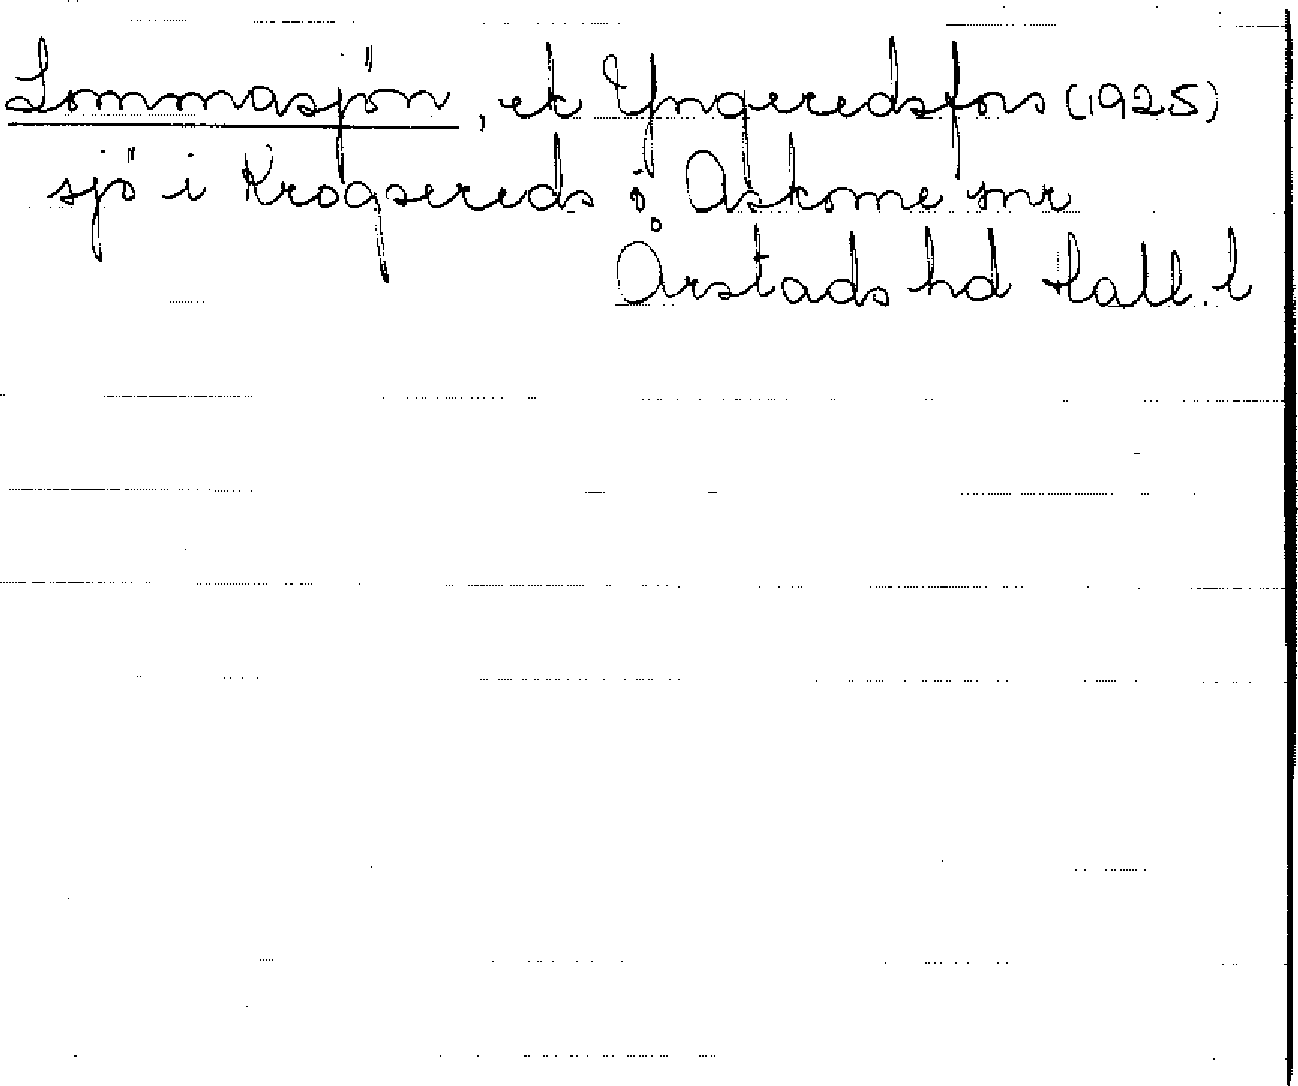 Lommasjön, ek Yngeredsfors (1925)
sjö i Krogsereds o Askome snr
Årstads hd Hall. l